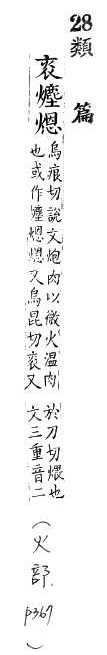 28 類 篇
煾
烏痕切說文炮肉以微火溫肉
也或作煾煾又烏昆切又
於刀切煨也
文三重音二
(火部 p367)